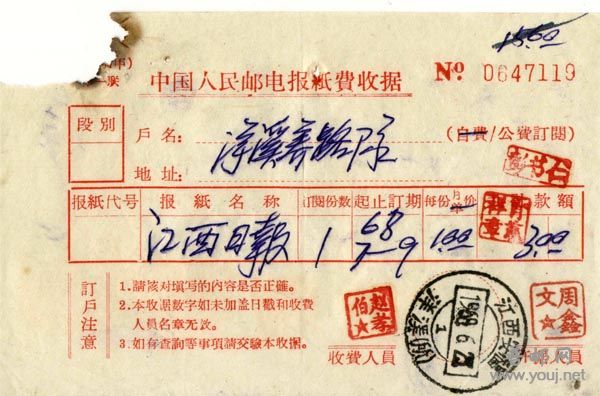 15.00
中国人民邮电报紙費收据 Nº 0647119
段別
戶名: 洋溪养路队 (自費/公費訂閱)
地址:
报紙代号 报紙名称 訂閱份数 起止訂期 每份月价 款額
江西日報 1 68 7-9 1.00 3.00
訂戶注意
1.請該对填写的內容是否正確。
2.本收据数字如未加盖日戳和收費
人員名章无效。
3.如有查詢等事項請交驗本收据。
赵孝伯
1968.6.2
江西安福
洋溪
周鑫文
收費人員
www.youj.net